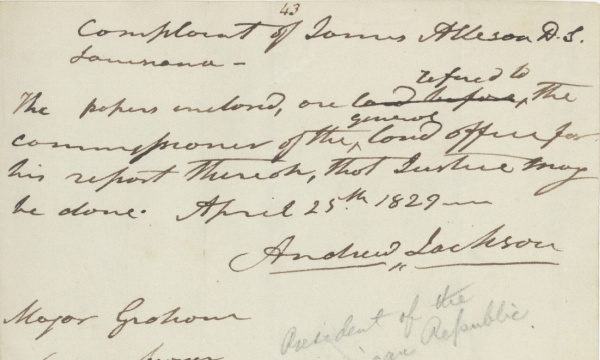 43
Complaint of James Alleson D.S.
Louisiana —
refered to
The papers inclosed, are laid before, the
general
commissioner of the land office for
his report thereon, that Justice may
be done. April 25th 1829 —
Andrew Jackson
Major Graham
President of the
Republic